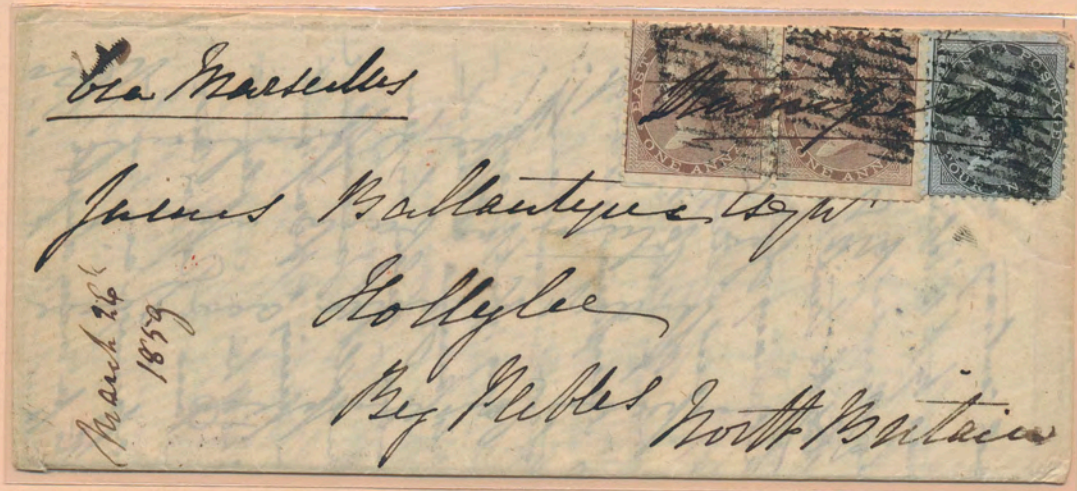 via Marseilles
EAST
ONE ANNA
ONE ANNA
POSTAGE
James Ballantyne Esqr
Hollylee
By Peebles North Britain
March 26
1859